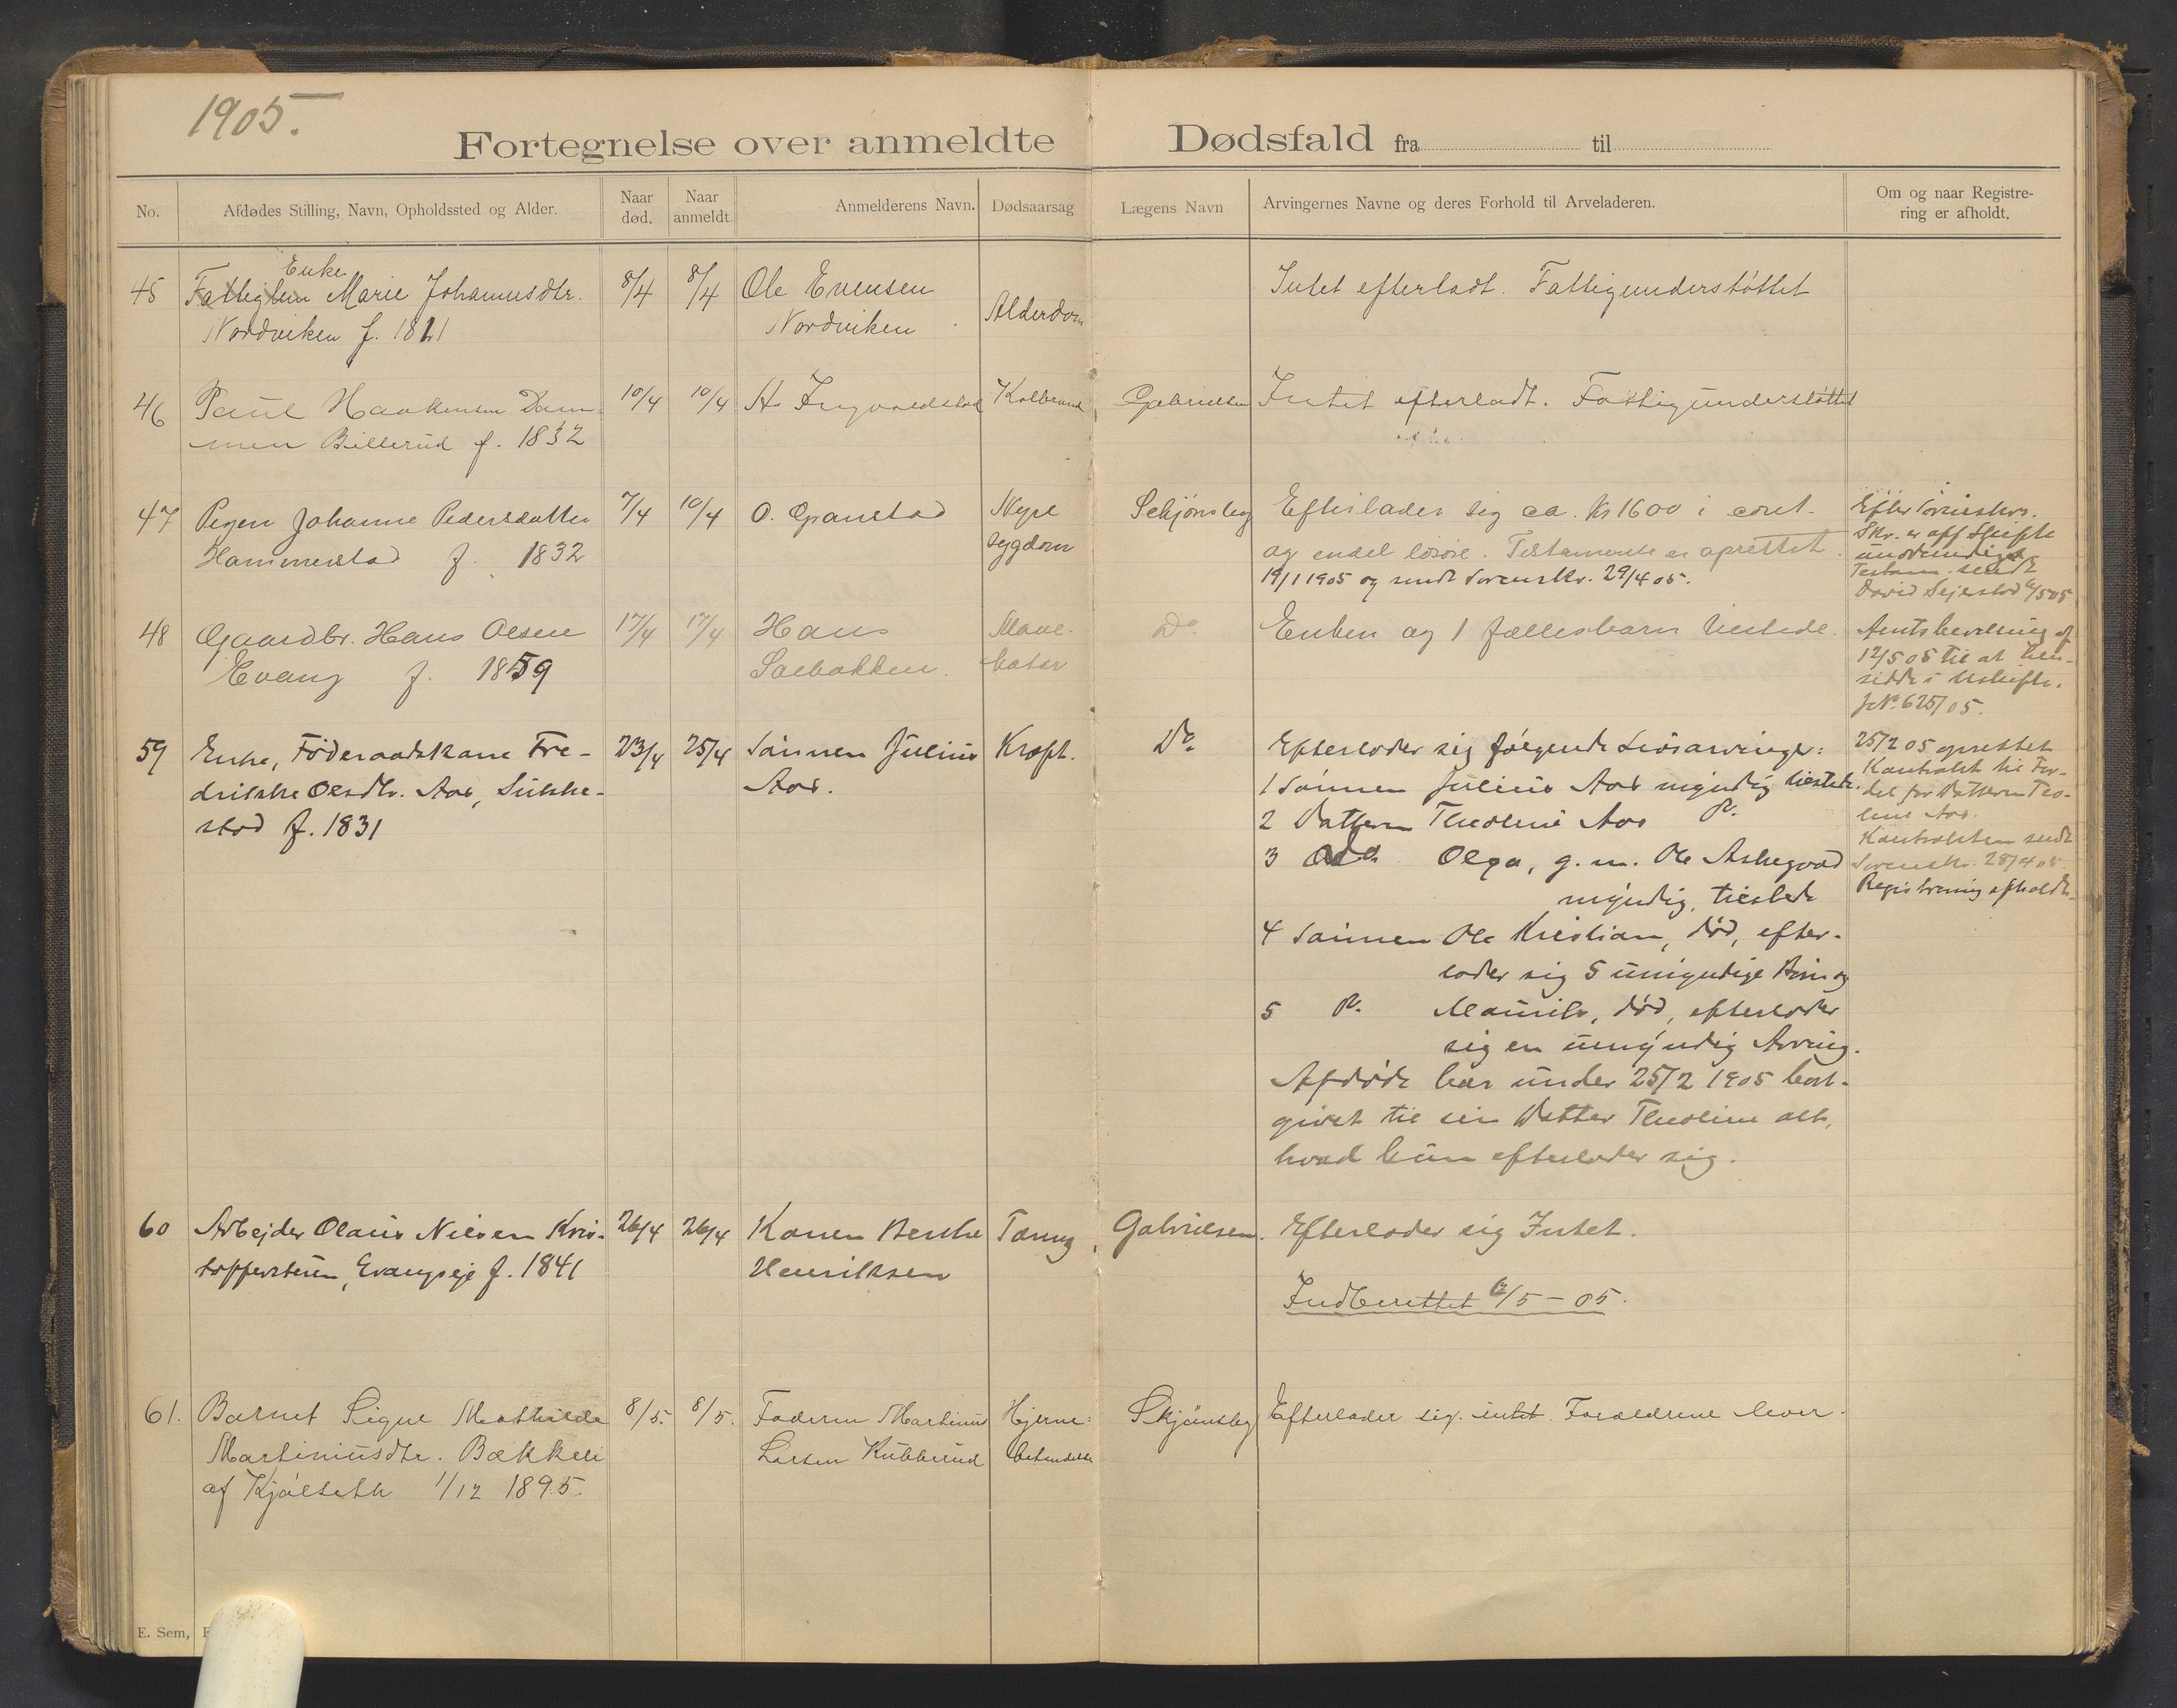 1905.
Fortegnelse over anmeldte Dødsfald fra til
No. Afdødes Stilling, Navn, Opholdssted og Alder. Naar død. Naar anmeldt. Anmelderens Navn. Dødsaarsag Lægens Navn Arvingernes Navne og deres Forhold til Arveladeren. Om og naar Registrering er afholdt.
Enke
45 Marie Johannusdtr. 8/4 8/4 Ole Evensen Alderdom Intet efterladt. Fattigunderstøttet
Nordviken f. 1821 Nordviken
46 Paul Haakensen Dam- 10/4 10/4 A. Ingvoldstad Kolbrand Gabrielsen Intet efterladt. Fattigunderstøttet
men Billerud f. 1832
47 Pigen Johanne Pedersdatter 7/4 10/4 O. Granstad Nyre Schjønsby Efterlader sig ca. Kr 1600 i cont.
Hammerstad f. 1832 sygdom og endel løsøre. Testamente er oprettet
19/1 1905 og sendt Sorenskr. 29/4 05.
Efter Sorenskrs.
Skr. er off Skifte
unødvendigt
Testam. sendt
David Sejerstad 6/5 05
48 Gaardbr. Hans Olsen 17/4 17/4 Hans Mave- Do Enken og 1 fællesbarn tilstede.
Evang f. 1859 Saebakken. katar
Amtsbevilling af
12/5 05 til at hen-
sidde i Uskifte.
J.No. 625/05.
59 Enke, Föderaadskone Fre- 23/4 25/4 Sønnen Julius Kræft. Do. Efterlader sig følgende Livsarvinger:
drikke Olsdtr. Aas, Sukke- Aas. 1 Sønnen Julius Aas myndig tilstede.
stad f. 1831 2 Datteren Theoline Aas Do.
3 do. Olga, g. m. Ole Askegaard
myndig, tilstede
4 Sønnen Ole Kristian, død, efter-
lader sig 5 umyndige Arving
5 Do. Mauritz, død, efterlader
sig en umyndig Arving.
Afdøde har under 25/2 1905 bort-
givet til sin Datter Theoline alt,
hvad hun efterlader sig.
25/2 05 oprettet
Kontrakt til For-
del for Datteren Teo-
line Aas.
Kontrakten sendt
Sorenskr. 28/4 05.
Registrering afholdt
60 Arbejder Olaus Nilsen Kris- 26/4 26/4 Konen Berthe Tæring Gabrielsen. Efterlader sig Intet.
toffersteen, Evangseje f. 1841 Henriksen
Indberettet 6/5 - 05.
61. Barnet Signe Mathilde 8/5. 8/5. Faderen Martinus Hjerne- Skjønsby Efterlader sig intet. Forældrene lever.
Martinusdtr. Bækkeli Larsen Kubberud betendelse
af Kjølseth 1/12 1895.
E. Sem,